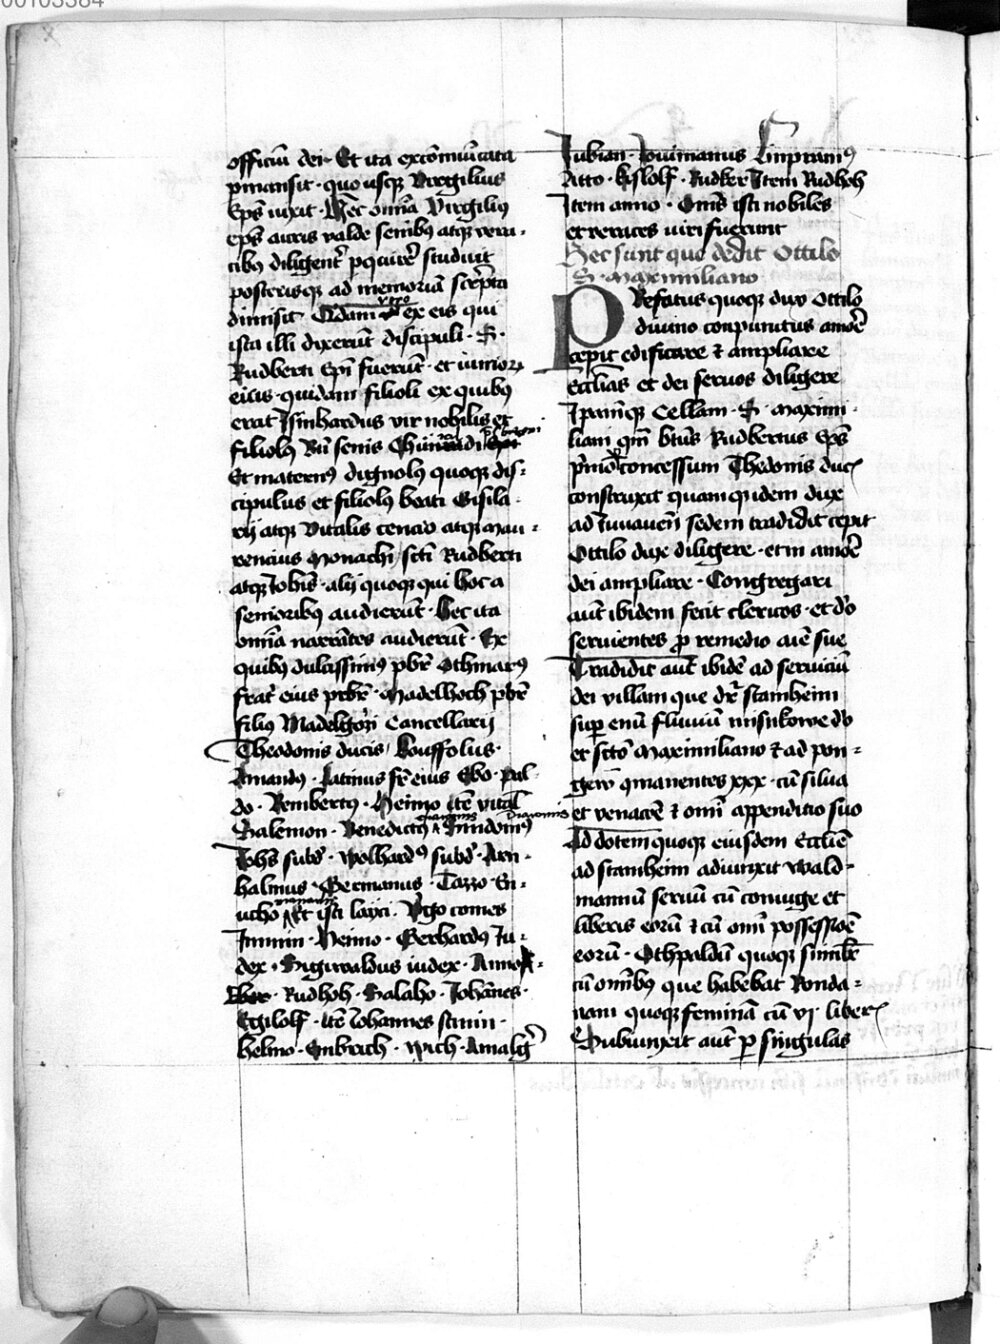 officiū dei · Et ita excōmūicata
pmansit · quo usqȝ Virgilius
Eps̄ uixit · Hec oīa Virgiliꝰ
eps̄ auris valde senibꝰ atqȝ vera-
cibꝰ diligent̄ pquire studuit
posterisqȝ ad memoriā sc̄pta
dimisit · Qdam vero ex eis qui
ista illi dixerūt discipuli · S ·
Rudberti Epī fuerūt · et iuniores
eius · quidam filioli ex quibꝰ
erat Isinhardus vir nobilis et
filiolꝰ Bī senis Chunradi
Et maternꝰ dignolꝰ quoqȝ dis-
cipulus et filiolꝰ beati Gisila-
rij atqȝ Vitalis cenao atqȝ mau-
rencius monachi sc̄i Rudberti
atqȝ Iohīs · alij quoqȝ qui hoc a
senioribꝰ audierūt · Hec ita
omīa narrātes audierūt · Ex
quibꝰ dulcissimꝰ pbr̄ Othmarꝰ
frat̄ eius prbr̄ · Madelhoch pbr̄
filiꝰ Madelgōzi Cancellarij
Theodonis ducis / Bouffolus ·
Amandꝰ · Latinus fr̄ eius Ebo · pal
do · Rembertꝰ · Heimo Itē vital̄
Salemon · Benedictꝰ Diaconus
Iohs̄ subd̄ · Wolhardꝰ subd̄ · Arn-
halmus · Germanus · Tazzo · En-
ucho · Et isti layci · Vgo comes
Immin · Heimo · Gerhardꝰ Iu-
dex · Sigiwaldus iudex · Anno
Rudhoh · Salaho · Iohānes ·
Egilolf · Itē Iohannes
helmo · Enbrich · Wich · Amalḡ
Iubian · Iouimanus Linpramꝰ
Atto · Kislolf · Rudker Item Rudhoh
Item anno · Om̄s isti nobiles
et veraces uiri fuerunt
Hec sunt que dedit Ottilo
S · Maximiliano
PRefatus quoqȝ dux Ottilo
diuino conpunctus amōe
cepit edificare ⁊ ampliare
Ecc̄lias et dei seruos diligere
Ipamqȝ Cellam · S · Maximi-
liani qm̄ bt̄us Rudbertus Eps̄
concessum Thedonis duc̄
construxit quam quidem dux
ad Iuuauen̄ sedem tradidit cepit
Ottilo dux diligere · et in amōe
dei ampliare · Congregari
aut̄ ibidem fecit clericos · et d̄o
seruientes p remedio aīe sue
Tradidit aut̄ ibidē ad seruiciū
dei villam que dr̄ Stamheim
sup enū fluuiū
et sc̄to Maximiliano ⁊ ad pon-
gew qmanentes xxx · cū silua
et venacōe ⁊ omī appendicio suo
Ad dotem quoqȝ eiusdem Eccliē
ad stamheim adiunxit Wald-
mannū seruū cū coniuge et
liberis eorū ⁊ cū omī possessiōe
eorū · Othpaldū quoqȝ simil̄r
cū omībꝰ que habebat Ronda-
nam quoqȝ feminā cū vj · liber̄
Subiunxit aut̄ p singulas